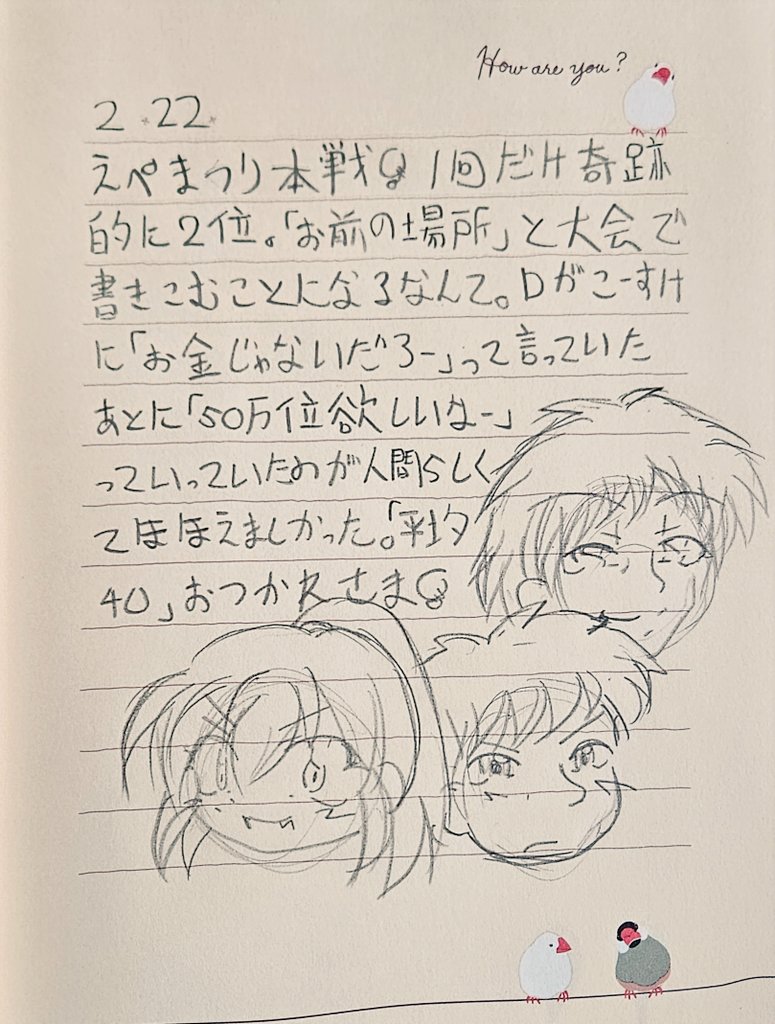 How are you?
2.22
えぺまつり本戦 1回だけ奇跡
的に2位。「お前の場所」と大会で
書きこむことになるなんて。Dがこーすけ
に「お金じゃないだろー」って言っていた
あとに「50万位欲しいなー」
っていっていたのが人間らしく
てほほえましかった。「平均
40」おつかれさま